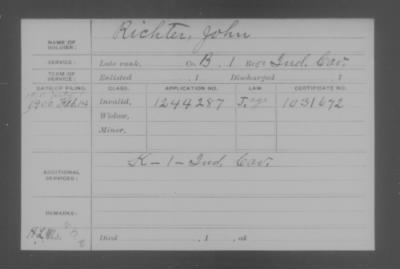 Richter, John
NAME OF SOLDIER:
SERVICE: Late rank, Co. B. 1 Reg't Ind. Cav.
TERM OF SERVICE: Enlisted , 1 Discharged , 1
DATE OF FILING. CLASS. APPLICATION NO. LAW. CERTIFICATE NO.
1900 Feb. 14 Invalid, 1244287 1031672
Widow,
Minor,
K-1-Ind. Cav.
ADDITIONAL SERVICES:
REMARKS:
Died , 1 , at